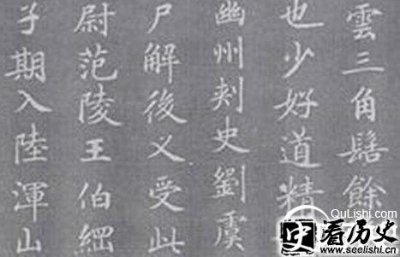 雲三角髻餘
也少好道精
幽州刾史劉虞
尸解後又受此
尉范陵王伯綱
子期入陸渾山
QuLishi.com
看历史
www.seelishi.cn